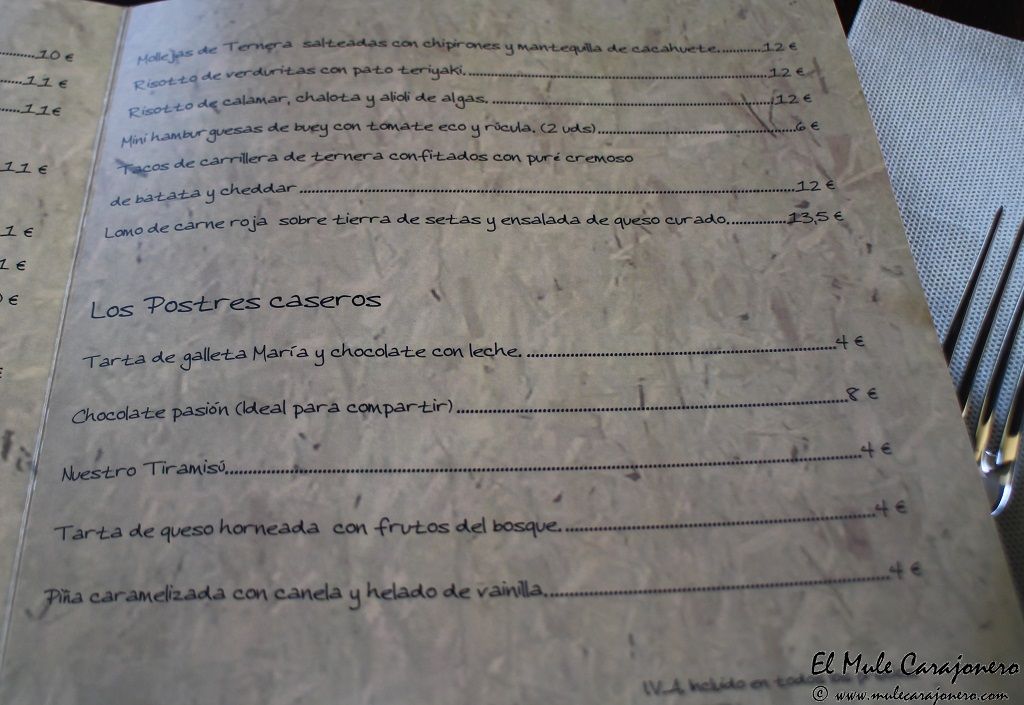 10 €
11 €
11 €
11 €
1 €
1 €
€
Mollejas de Ternera salteadas con chipirones y mantequilla de cacahuete............12 €
Risotto de verduritas con pato teriyaki.............................................................12 €
Risotto de calamar, chalota y alioli de algas. .........................................................12 €
Mini hamburguesas de buey con tomate eco y rúcula. (2 uds)........................................6 €
Tacos de carrillera de ternera confitados con puré cremoso
de batata y cheddar ..........................................................................................12 €
Lomo de carne roja sobre tierra de setas y ensalada de queso curado...............13,5 €
Los Postres caseros
Tarta de galleta María y chocolate con leche. .......................................................4 €
Chocolate pasión (Ideal para compartir)................................................................8 €
Nuestro Tiramisú................................................................................................4 €
Tarta de queso horneada con frutos del bosque....................................................4 €
Piña caramelizada con canela y helado de vainilla..................................................4 €
en todos
El Mule Carajonero
© www.mulecarajonero.com